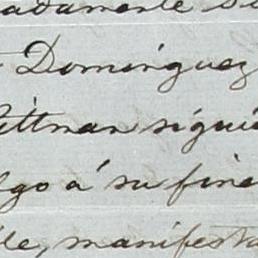 adamente su
Dominguez
ittman siguió
go á su fine
le, manifesta